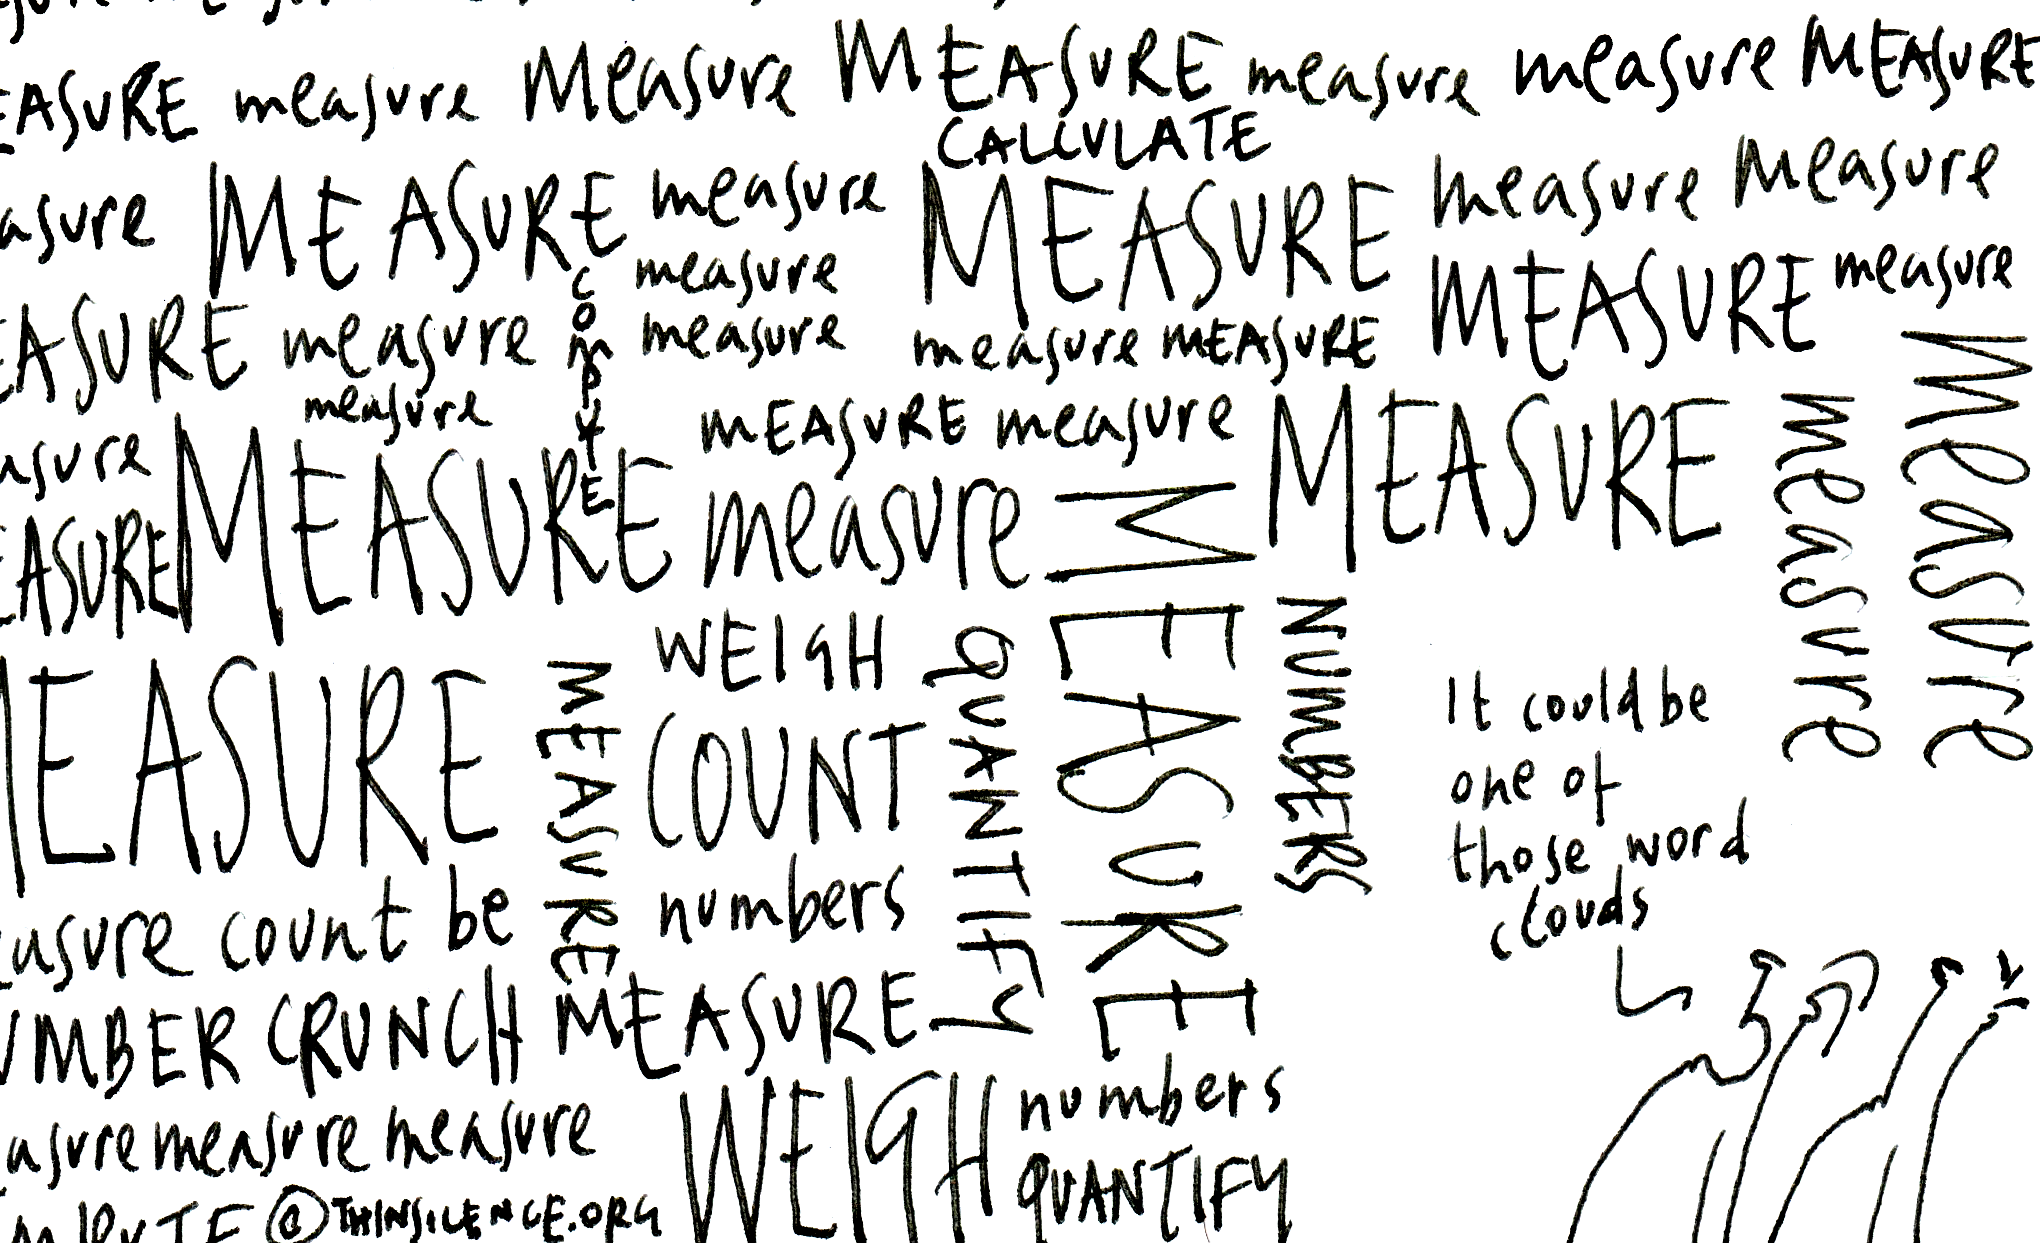 EASURE measure Measure MEASURE measure measure MEASURE
CALCULATE
asure MEASURE measure MEASURE measure Measure
measure
COMPUTE
EASURE measure measure measure MEASURE MEASURE measure
measure
asure MEASURE MEASURE measure MEASURE measure Measure
EASURE measure
MEASURE
WEIGH
QUANTIFY
NUMBERS
MEASURE
MEASURE
COUNT
It could be
one of
those word
clouds
easure count be numbers
UMBER CRUNCH MEASURE
asure measure measure WEIGH numbers
QUANTIFY
©THINSILENCE.ORG